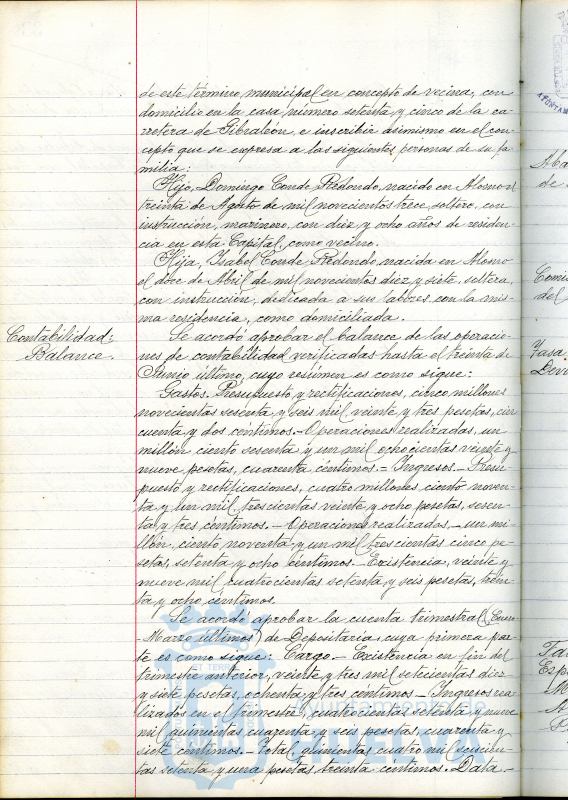 de este término municipal en concepto de vecina, con
domicilio en la casa número setenta y cinco de la ca-
rretera de Gibraleón, e inscribir asimismo en el con-
cepto que se expresa a las siguientes personas de su fa
milia:
Hijo, Domingo Conde Redondo, nacido en Alosno el
treinta de Agosto de mil novecientos trece, soltero, con
instrucción, marinero, con diez y ocho años de residen-
cia en esta Capital, como vecino.
Hija, Isabel Conde Redondo, nacida en Alosno
el doce de Abril de mil novecientos diez y siete, soltera,
con instrucción, dedicada a sus labores con la mis-
ma residencia, como domiciliada.
Contabilidad:
Balance.
Se acordó aprobar el balance de las operacio-
nes de contabilidad verificadas hasta el treinta de
Junio último, cuyo resúmen es como sigue:
Gastos. Presupuesto y rectificaciones, cinco millones
novecientas setenta y seis mil veinte y tres pesetas, cin
cuenta y dos céntimos.- Operaciones realizadas, un
millón ciento sesenta y un mil ochocientas veinte y
nueve pesetas, cuarenta céntimos.= Ingresos.- Presu-
puesto y rectificaciones, cuatro millones ciento noven-
ta y un mil trescientas veinte y ocho pesetas, sesen-
ta y tres céntimos.- Operaciones realizadas,- un mi-
llón, ciento noventa y un mil trescientas cinco pe-
setas, setenta y ocho céntimos.- Existencia, veinte y
nueve mil cuatrocientas setenta y seis pesetas, trein
ta y ocho céntimos.
Se acordó aprobar la cuenta trimestral (Enero-
-Marzo últimos) de Depositaría, cuya primera par-
te es como sigue: Cargo.- Existencia en fin del
trimestre anterior, veinte y tres mil setecientas diez
y siete pesetas, ochenta y tres céntimos.- Ingresos rea-
lizados en el trimestre, cuatrocientas setenta y nueve
mil quinientas cuarenta y seis pesetas, cuarenta y
siete céntimos.- Total, quinientas cuatro mil seiscien-
tas setenta y una pesetas treinta céntimos. Data.-
Ayuntamiento de
HUELVA
de
Tasa